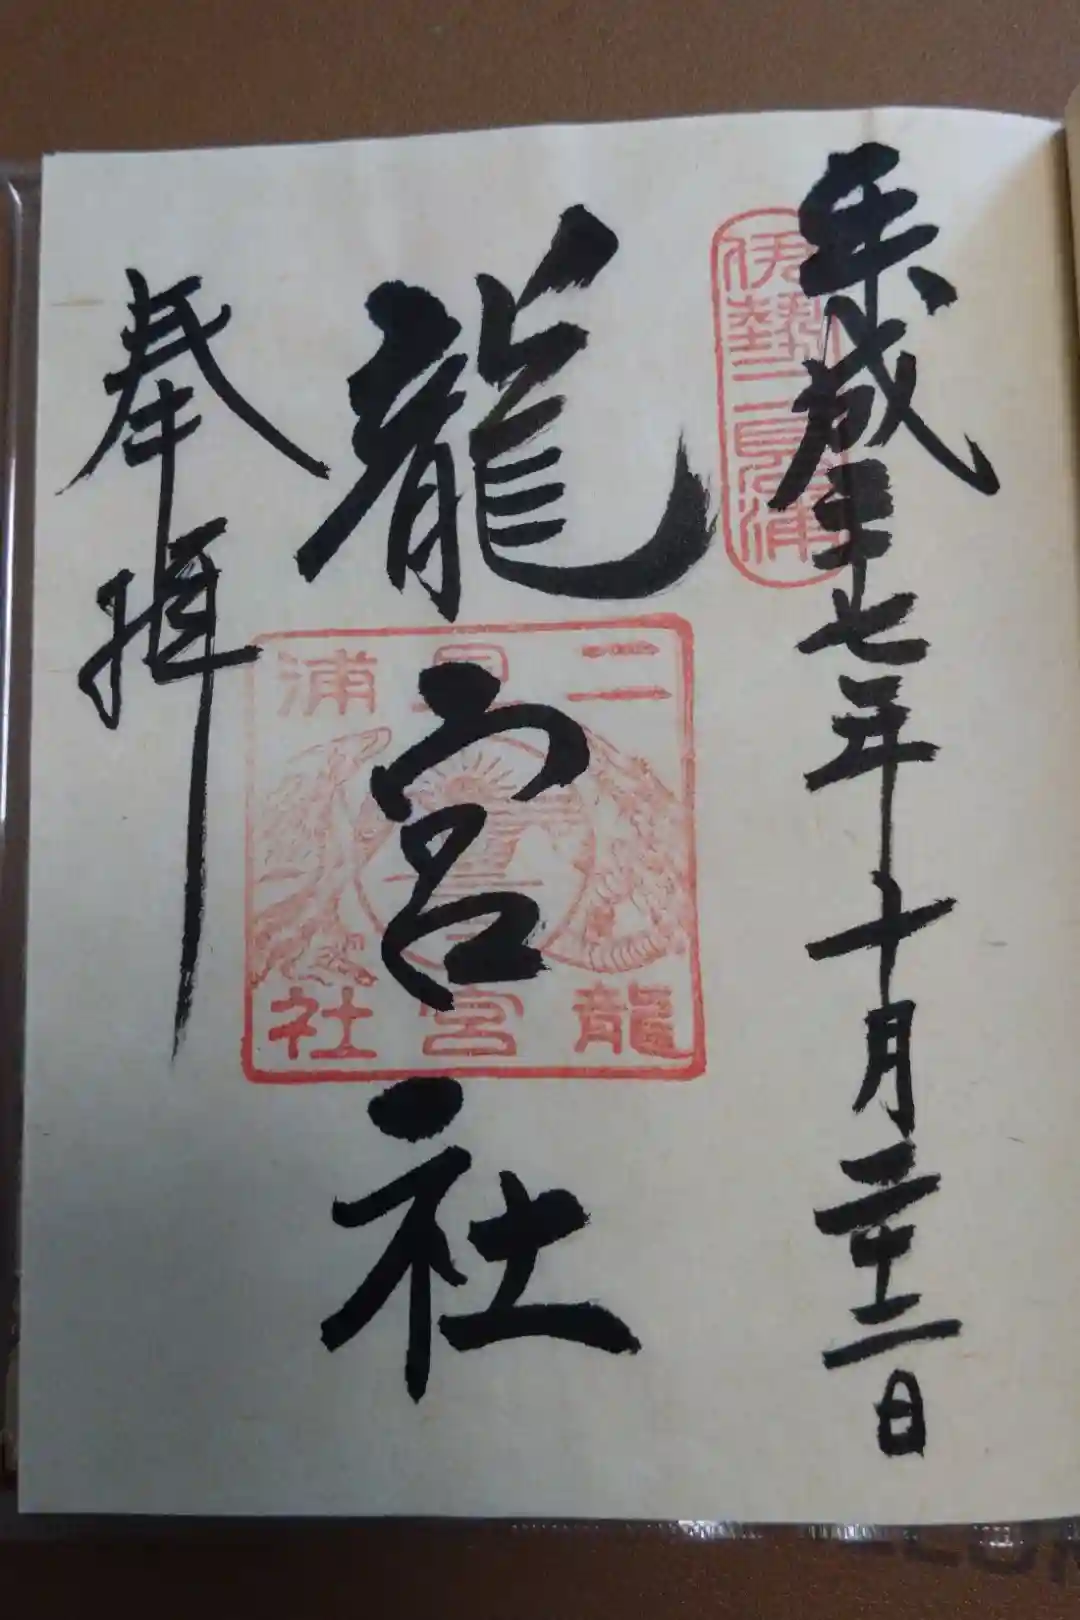 平成二十七年十月二十二日
伊勢二見浦
龍宮社
二見浦
龍宮社
奉拝